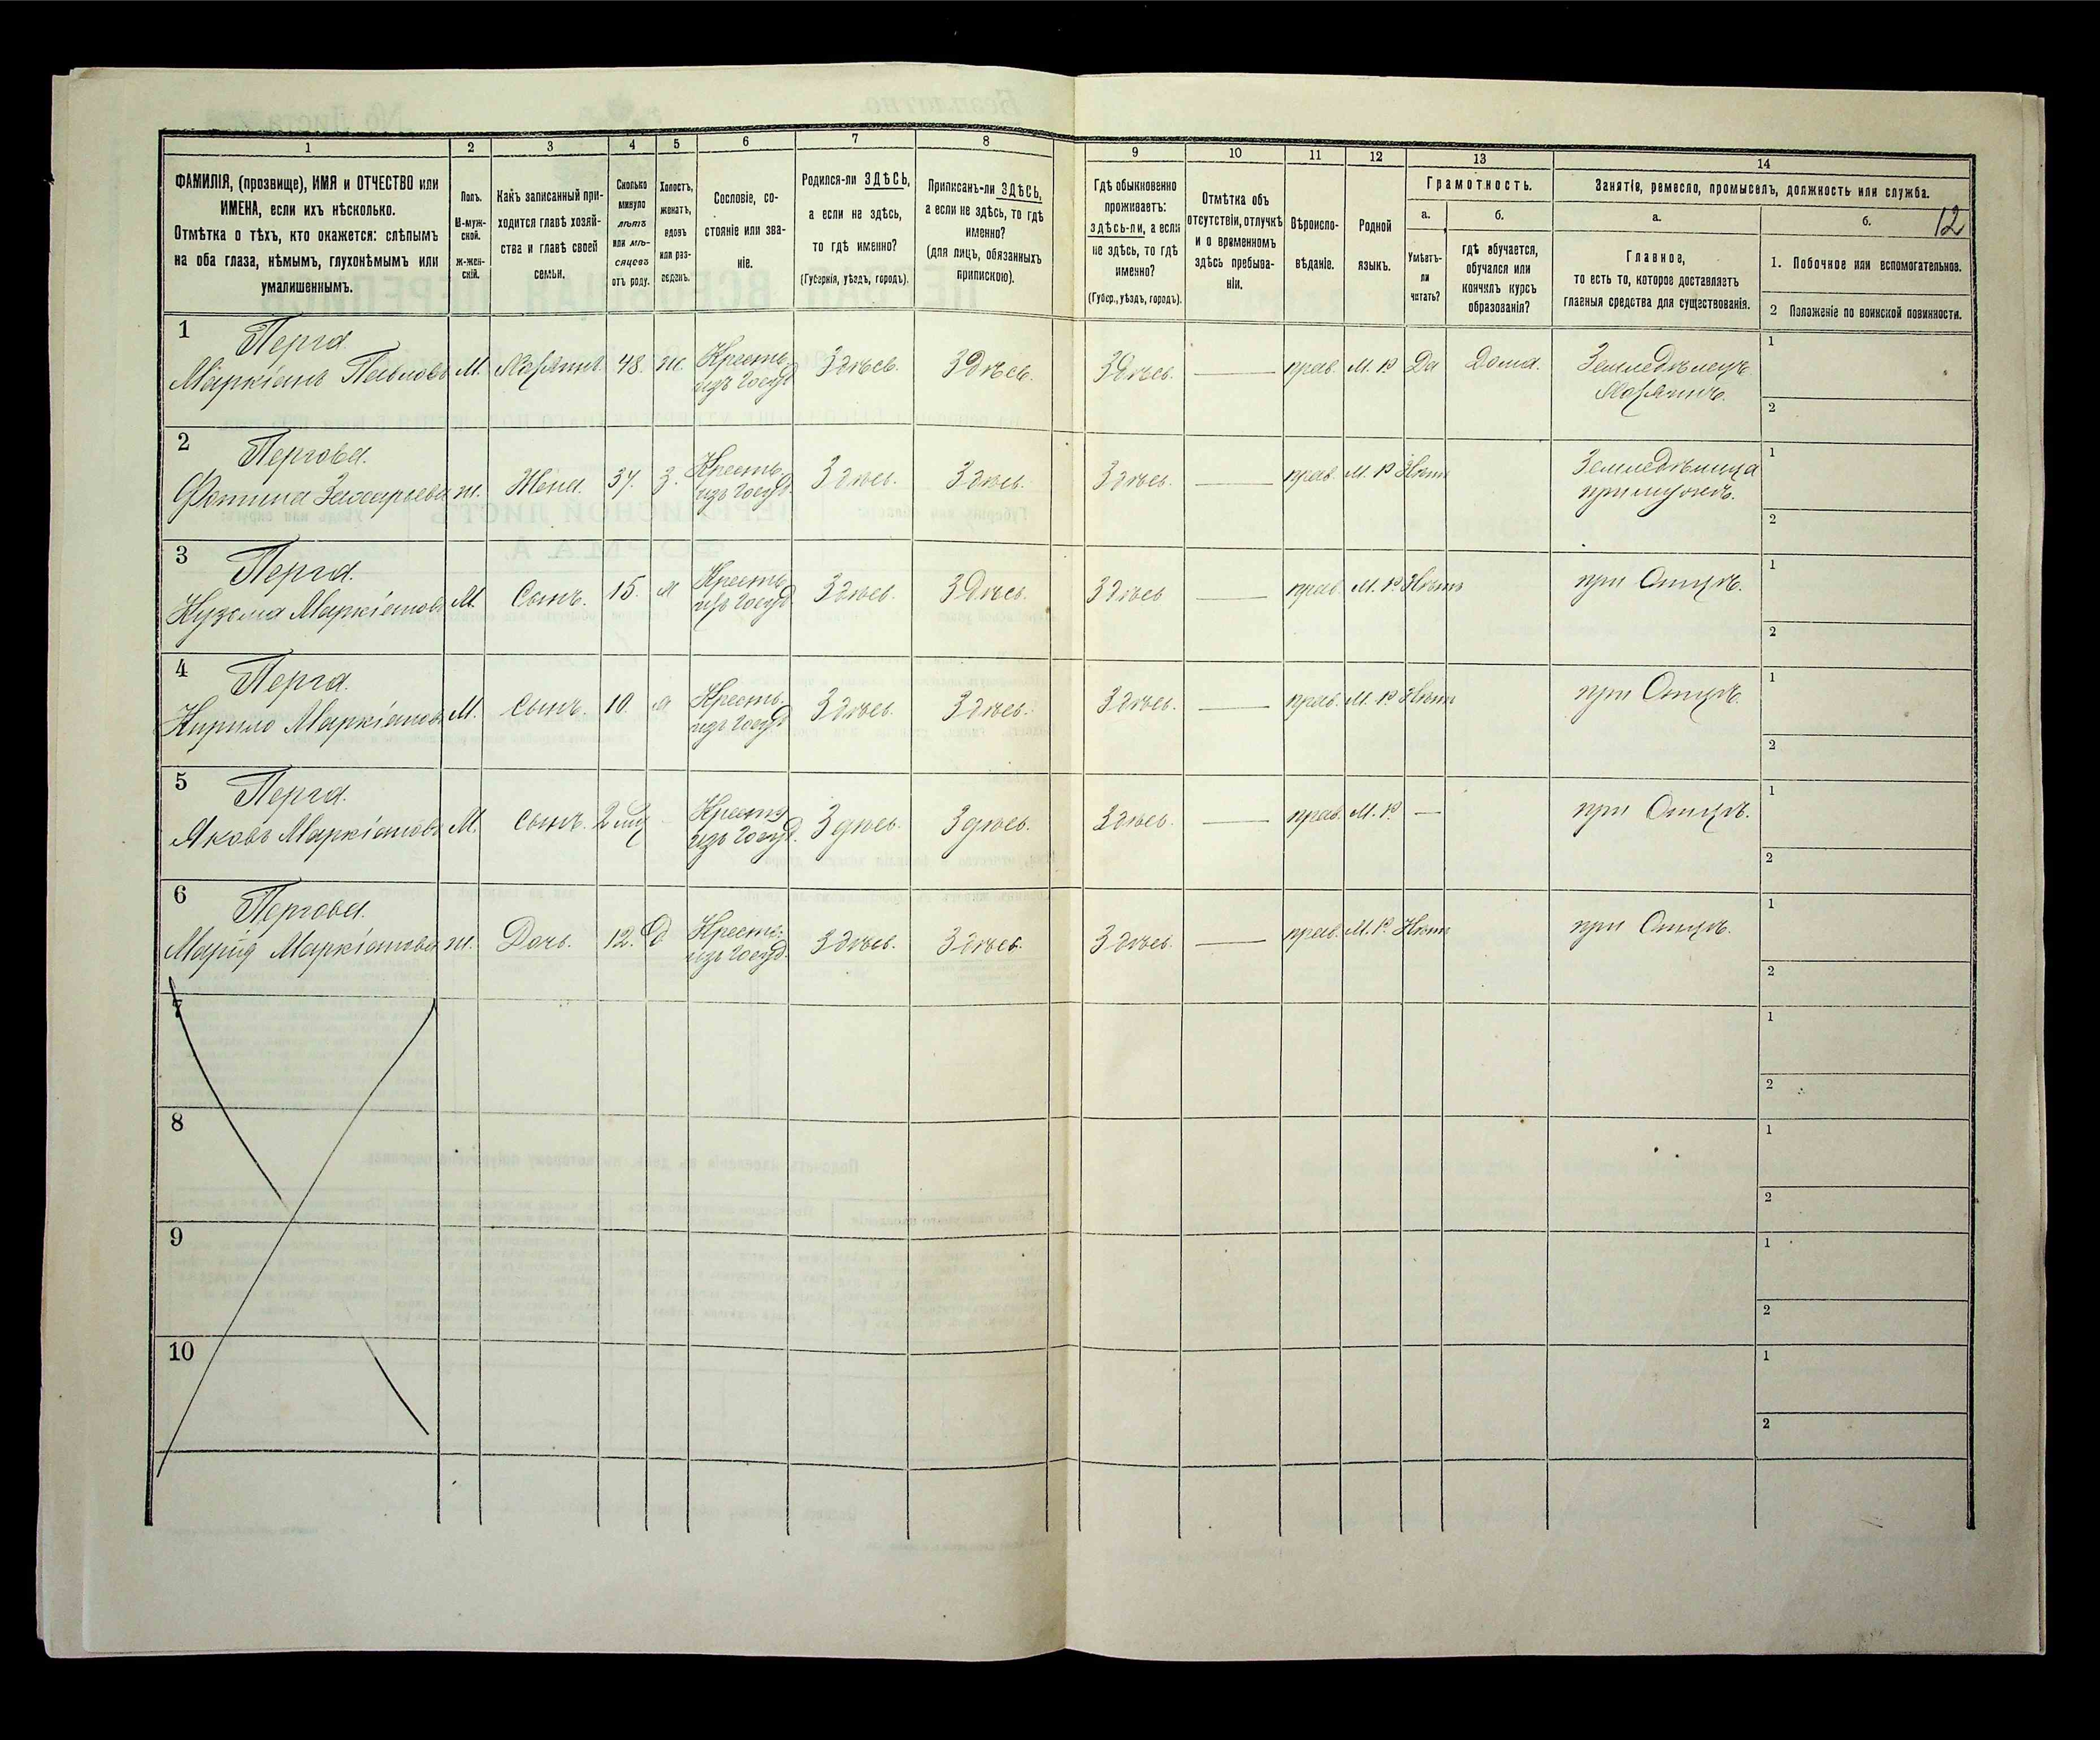 1 2 3 4 5 6 7 8 9 10 11 12 13 14
ФАМИЛІЯ, (прозвище), ИМЯ и ОТЧЕСТВО или
ИМЕНА, если ихъ нѣсколько.
Отмѣтка о тѣхъ, кто окажется: слѣпымъ
на оба глаза, нѣмымъ, глухонѣмымъ или
умалишеннымъ.
Полъ.
М-муж-
ской.
ж-жен-
скій.
Какъ записанный при-
ходится главѣ хозяй-
ства и главѣ своей
семьи.
Сколько
минуло
лѣтъ
или мѣ-
сяцевъ
отъ роду.
Холостъ,
женатъ,
вдовъ
или раз-
веденъ.
Сословіе, со-
стояніе или зва-
ніе.
Родился-ли ЗДѢСЬ,
а если не здѣсь,
то гдѣ именно?
(Губернія, уѣздъ, городъ).
Приписанъ-ли ЗДѢСЬ,
а если не здѣсь, то гдѣ
именно?
(для лицъ, обязанныхъ
припискою).
Гдѣ обыкновенно
проживаетъ:
здѣсь-ли, а если
не здѣсь, то гдѣ
именно?
(Губер., уѣздъ, городъ).
Отмѣтка объ
отсутствіи, отлучкѣ
и о временномъ
здѣсь пребыва-
ніи.
Вѣроиспо-
вѣданіе.
Родной
языкъ.
Грамотность.
а.
Умѣетъ-
ли
читать?
б.
гдѣ обучается,
обучался или
кончилъ курсъ
образованія?
Занятіе, ремесло, промыселъ, должность или служба.
а.
Главное,
то есть то, которое доставляетъ
главныя средства для существованія.
б.
12
1. Побочное или вспомогательное.
2 Положеніе по воинской повинности.
1
Перга
Маркіанъ Павловъ М. Хозяинъ 48. ж. Крестьян
изъ госуд Здѣсь. Здѣсь. Здѣсь. — прав. М. Р Да Дома. Земледѣлецъ
Хозяинъ.
1
2
2
Пергова.
Фотина Захарьева ж. Жена. 37. З. Кресть.
изъ госуд. Здѣсь. Здѣсь. Здѣсь. — прав. М. Р Нѣтъ Земледѣлица
при мужѣ.
1
2
3
Перга.
Кузьма Маркіановъ М. Сынъ. 15. Х Кресть
изъ госуд. Здѣсь. Здѣсь. Здѣсь — прав. М. Р. Нѣтъ при Отцѣ.
1
2
4
Перга.
Кирило Маркіановъ М. Сынъ. 10. Х Кресть.
изъ госуд Здѣсь. Здѣсь. Здѣсь. — прав. М. Р Нѣтъ при Отцѣ.
1
2
5
Перга.
Яковъ Маркіановъ М. Сынъ. 2 мѣс Кресть
изъ госуд. Здѣсь. Здѣсь. Здѣсь. — прав. М. Р. — при Отцѣ.
1
2
6
Пергова.
Марія Маркіанова ж. Дочь. 12. Д. Кресть.
изъ госуд. Здѣсь. Здѣсь. Здѣсь. — прав. М. Р. Нѣтъ при Отцѣ.
1
2
7
1
2
8
1
2
9
1
2
10
1
2